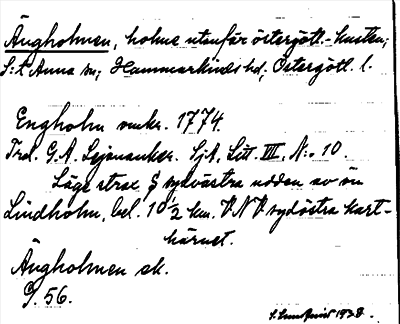 Ängholmen, holme utanför östergötl.-kusten;
S:t Anna sn; Hammarkinds hd, Östergötl. l.
Engholm omkr. 1774.
Trol. G. A. Lejonanker. SjA, Litt. VII, N:o 10.
Läge strax S sydvästra udden av ön
Lindholm, bel. 10 1/2 km. VNV sydöstra kart-
hörnet.
Ängholmen ek.
G. 56.
S. Lundqvist 1938.